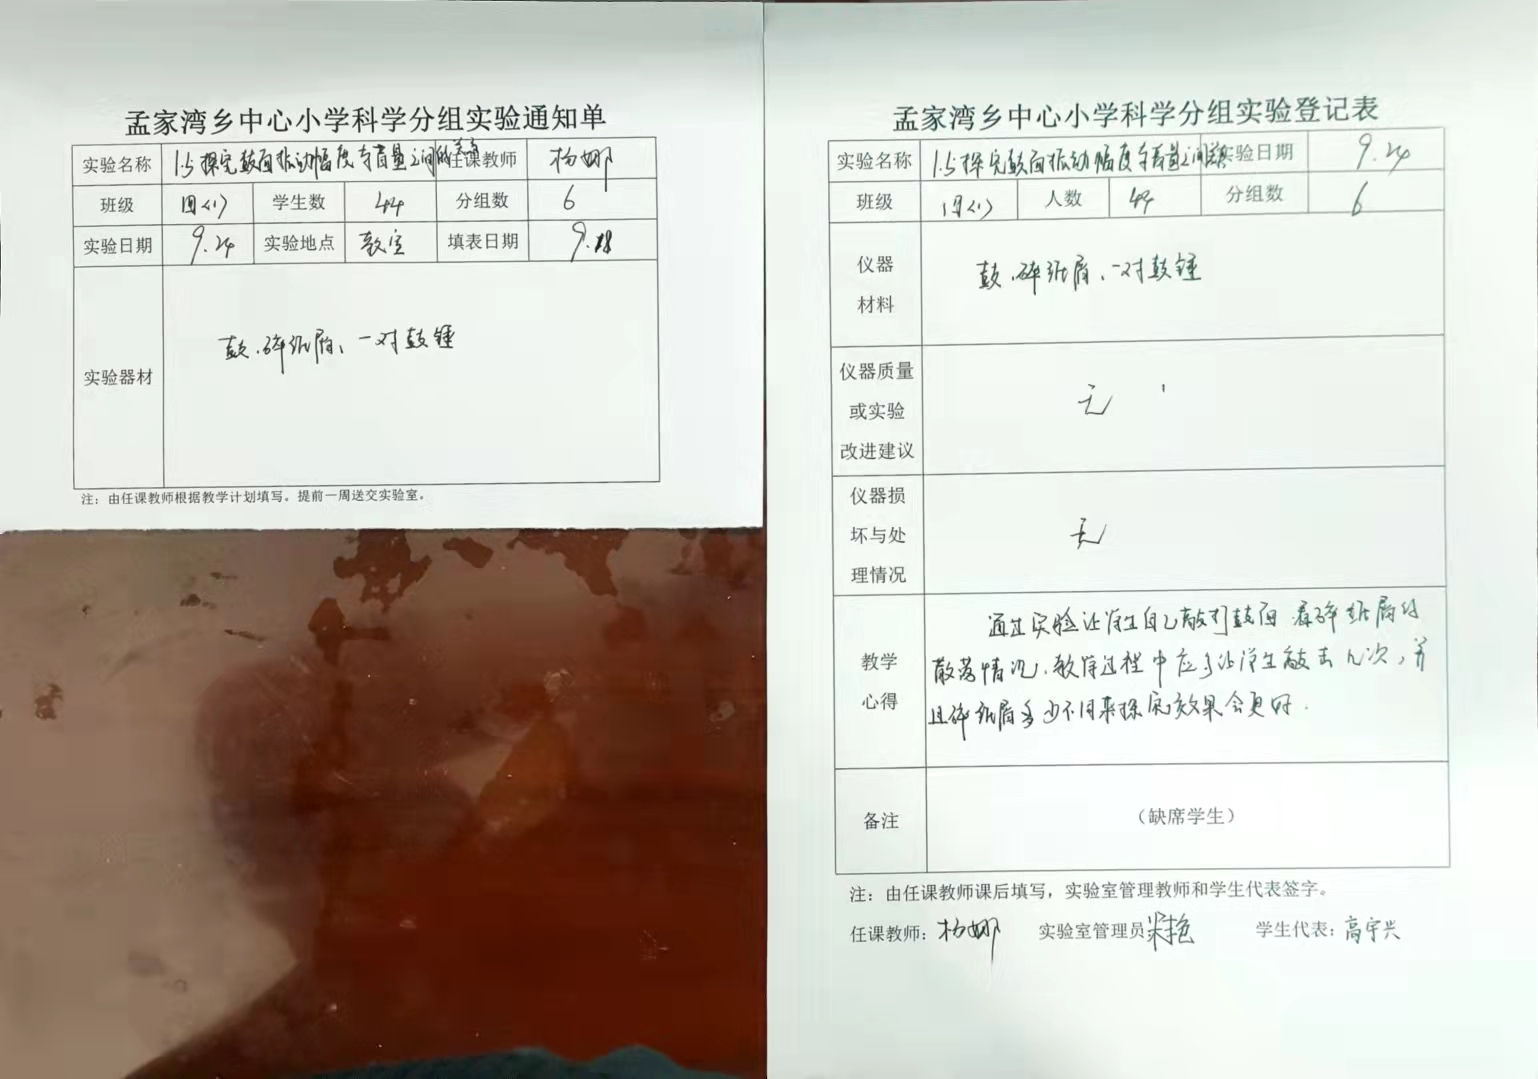 孟家湾乡中心小学科学分组实验通知单
实验名称 1.5探究鼓面振动幅度与音量之间的关系 任课教师 杨娜
班级 四(1) 学生数 44 分组数 6
实验日期 9.24 实验地点 教室 填表日期 9.18
实验器材 鼓、碎纸屑、一对鼓锤
注：由任课教师根据教学计划填写。提前一周送交实验室。
孟家湾乡中心小学科学分组实验登记表
实验名称 1.5探究鼓面振动幅度与音量之间关系 实验日期 9.24
班级 四(1) 人数 44 分组数 6
仪器
材料
鼓、碎纸屑、一对鼓锤
仪器质量
或实验
改进建议
无
仪器损
坏与处
理情况
无
教学
心得
通过实验让学生自己敲打鼓面看碎纸屑的
散落情况，教学过程中应多让学生敲击几次，并
且碎纸屑多少不同来探究效果会更好.
备注 （缺席学生）
注：由任课教师课后填写，实验室管理教师和学生代表签字。
任课教师：杨娜 实验室管理员 学生代表：高宇兴